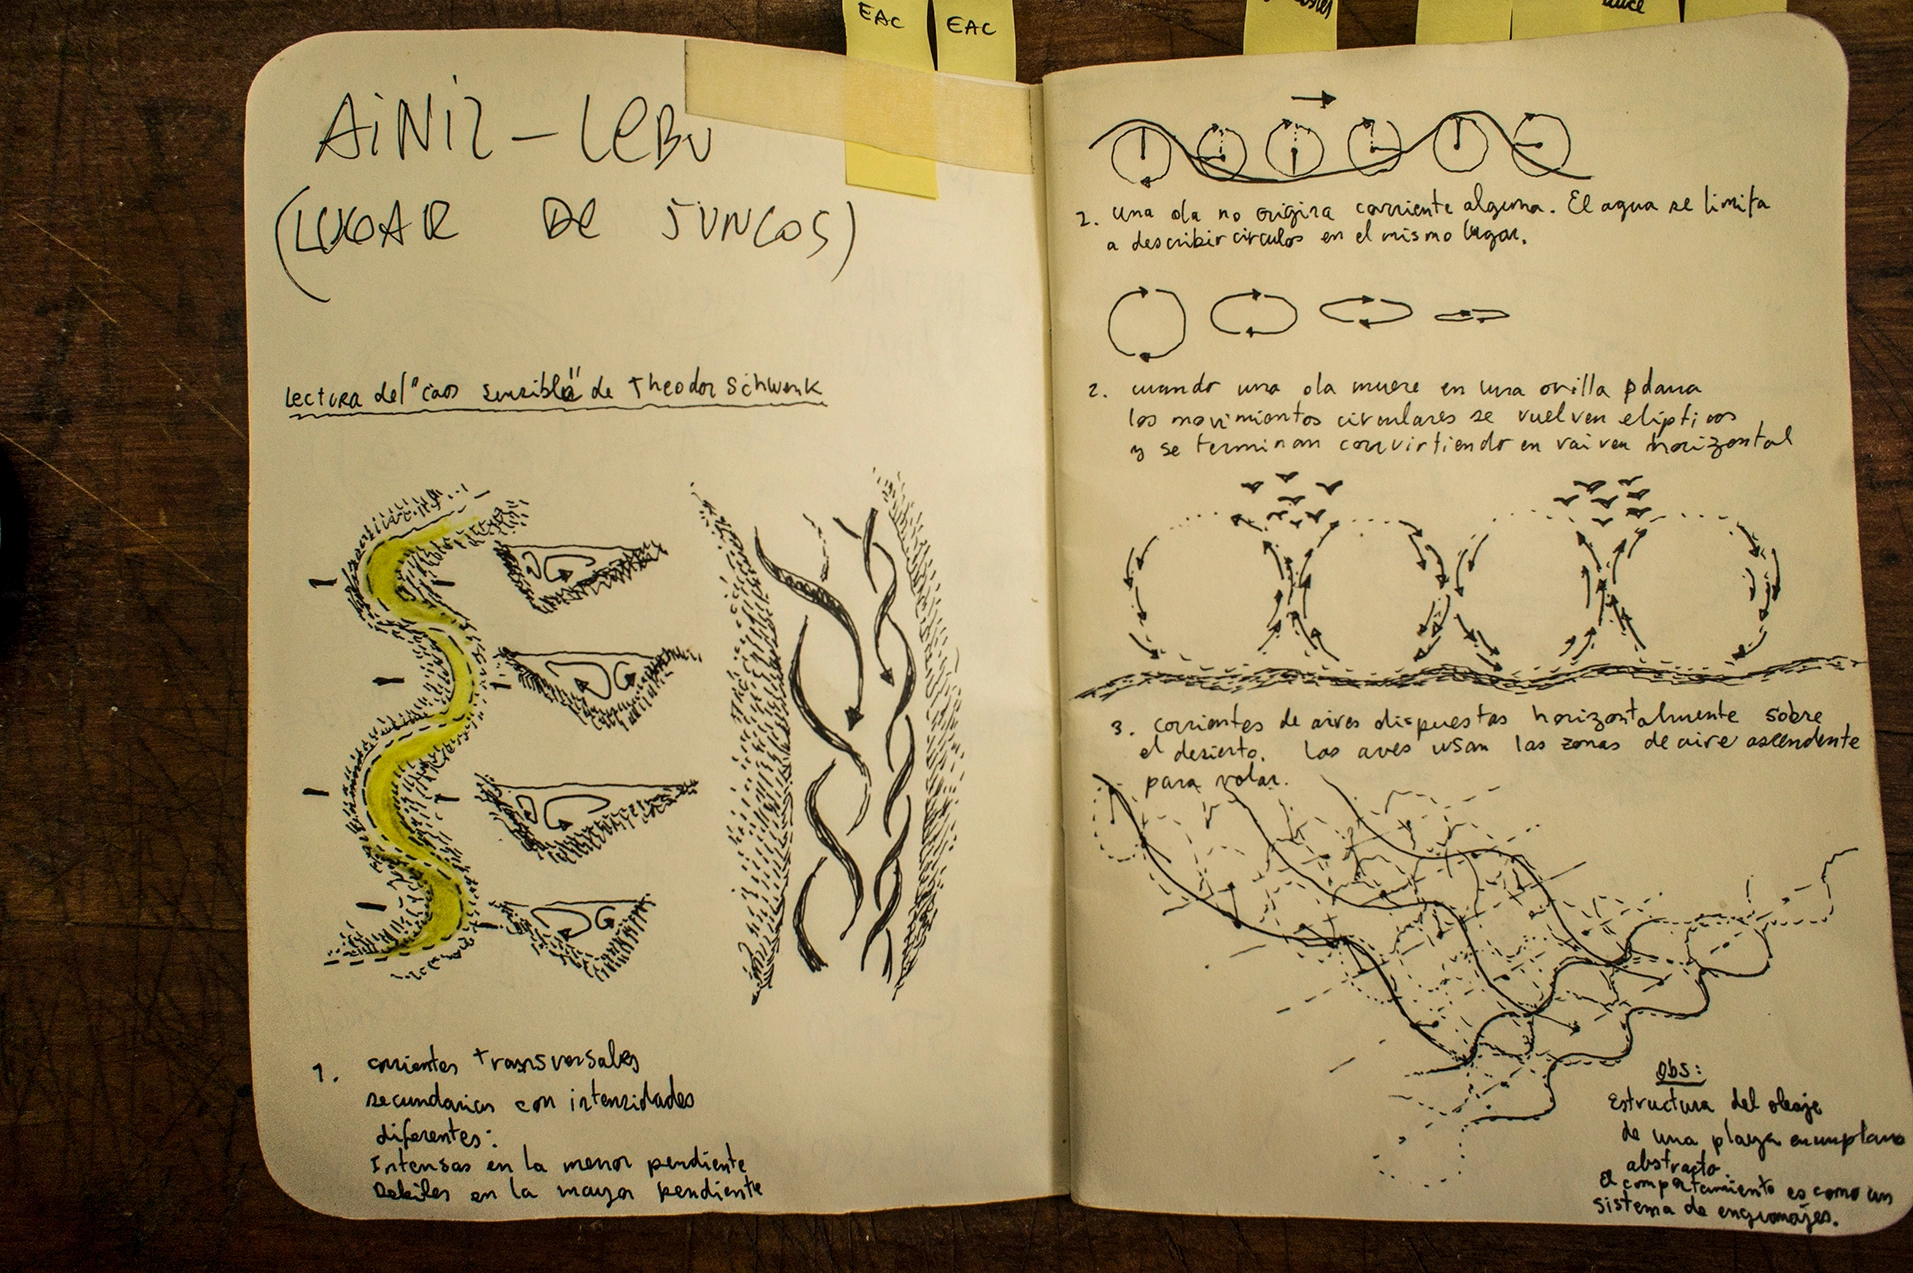 EAC
EAC
AiNil – LeBu
(LUGAR DE JUNCOS)
Lectura del "caos sensible" de Theodor Schwenk
1. corrientes transversales
secundarias con intensidades
diferentes:
Intensas en la menor pendiente
Debiles en la mayor pendiente
1. una ola no origina corriente alguna. El agua se limita
a describir circulos en el mismo lugar.
2. cuando una ola muere en una orilla plana
los movimientos circulares se vuelven elipticos
y se terminan convirtiendo en vaiven horizontal
3. corrientes de aires dispuestas horizontalmente sobre
el desierto. Las aves usan las zonas de aire ascendente
para volar.
Obs:
Estructura del oleaje
de una playa en un plano
abstracto.
el comportamiento es como un
sistema de engranajes.